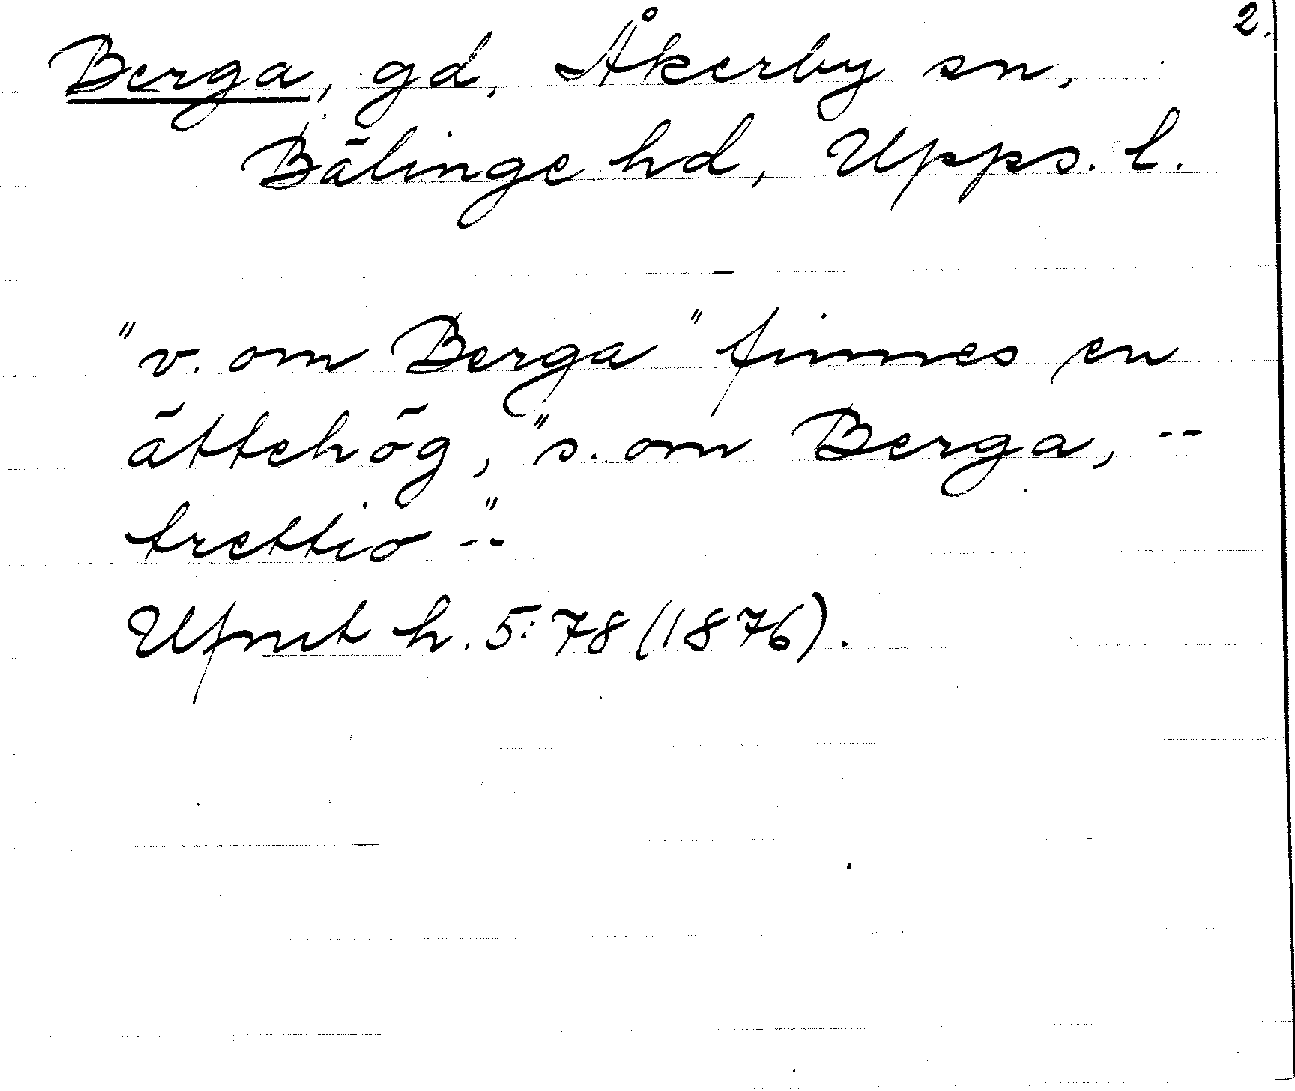 2.
Berga, gd, Åkerby sn,
Bälinge hd, Upps. l.
"v. om Berga" finnes en
ättehög, "s. om Berga, --
trettio --"
Ufmt h. 5:78 (1876).